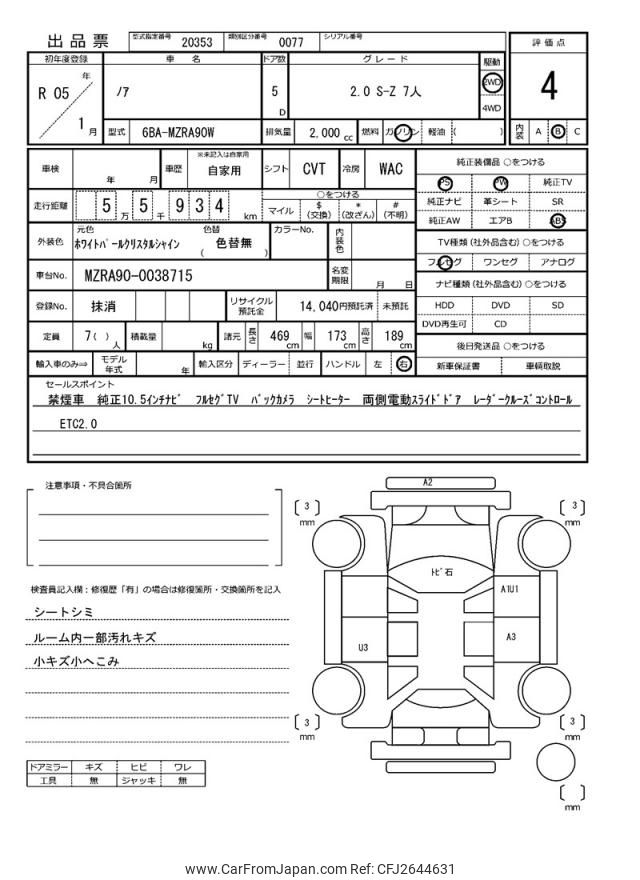 出品票 型式指定番号 20353 類別区分番号 0077 シリアル番号
評価点
4
内装 A B C
初年度登録 車名 ドア数 グレード 駆動
R 05 年 1 月
ノア 5 D 2.0 S-Z 7人 2WD 4WD
型式 6BA-MZRA90W 排気量 2,000 cc 燃料 ガソリン 軽油 ( )
車検 年 月 車歴 ※未記入は自家用 自家用 シフト CVT 冷房 WAC
走行距離 5万 5千 9 3 4 km
○をつける
マイル $(交換) *(改ざん) #(不明)
外装色 元色 ホワイトパールクリスタルシャイン 色替 ( 色替無 ) カラーNo. 内装色
車台No. MZRA90-0038715 名変期限 月 日
登録No. 抹消 リサイクル預託金 14,040円預託済 未預託
定員 7( )人 積載量 kg 諸元 長さ 469 cm 幅 173 cm 高さ 189 cm
輸入車のみ⇒ モデル年式 年 輸入区分 ディーラー 並行 ハンドル 左 右
純正装備品 ○をつける
PS PW 純正TV
純正ナビ 革シート SR
純正AW エアB ABS
TV種類(社外品含む)○をつける
フルセグ ワンセグ アナログ
ナビ種類(社外品含む)○をつける
HDD DVD SD
DVD再生可 CD
後日発送品 ○をつける
新車保証書 車輌取説
セールスポイント
禁煙車 純正10.5インチナビ フルセグTV バックカメラ シートヒーター 両側電動スライドドア レーダークルーズコントロール
ETC2.0
注意事項・不具合箇所
検査員記入欄:修復歴「有」の場合は修復箇所・交換箇所を記入
シートシミ
ルーム内一部汚れキズ
小キズ小へこみ
ドアミラー キズ ヒビ ワレ
工具 無 ジャッキ 無
A2
[ 3 ] mm
[ 3 ] mm
トビ石
A1U1
U3
A3
[ 3 ] mm
[ 3 ] mm
[ ] mm
www.CarFromJapan.com Ref: CFJ2644631